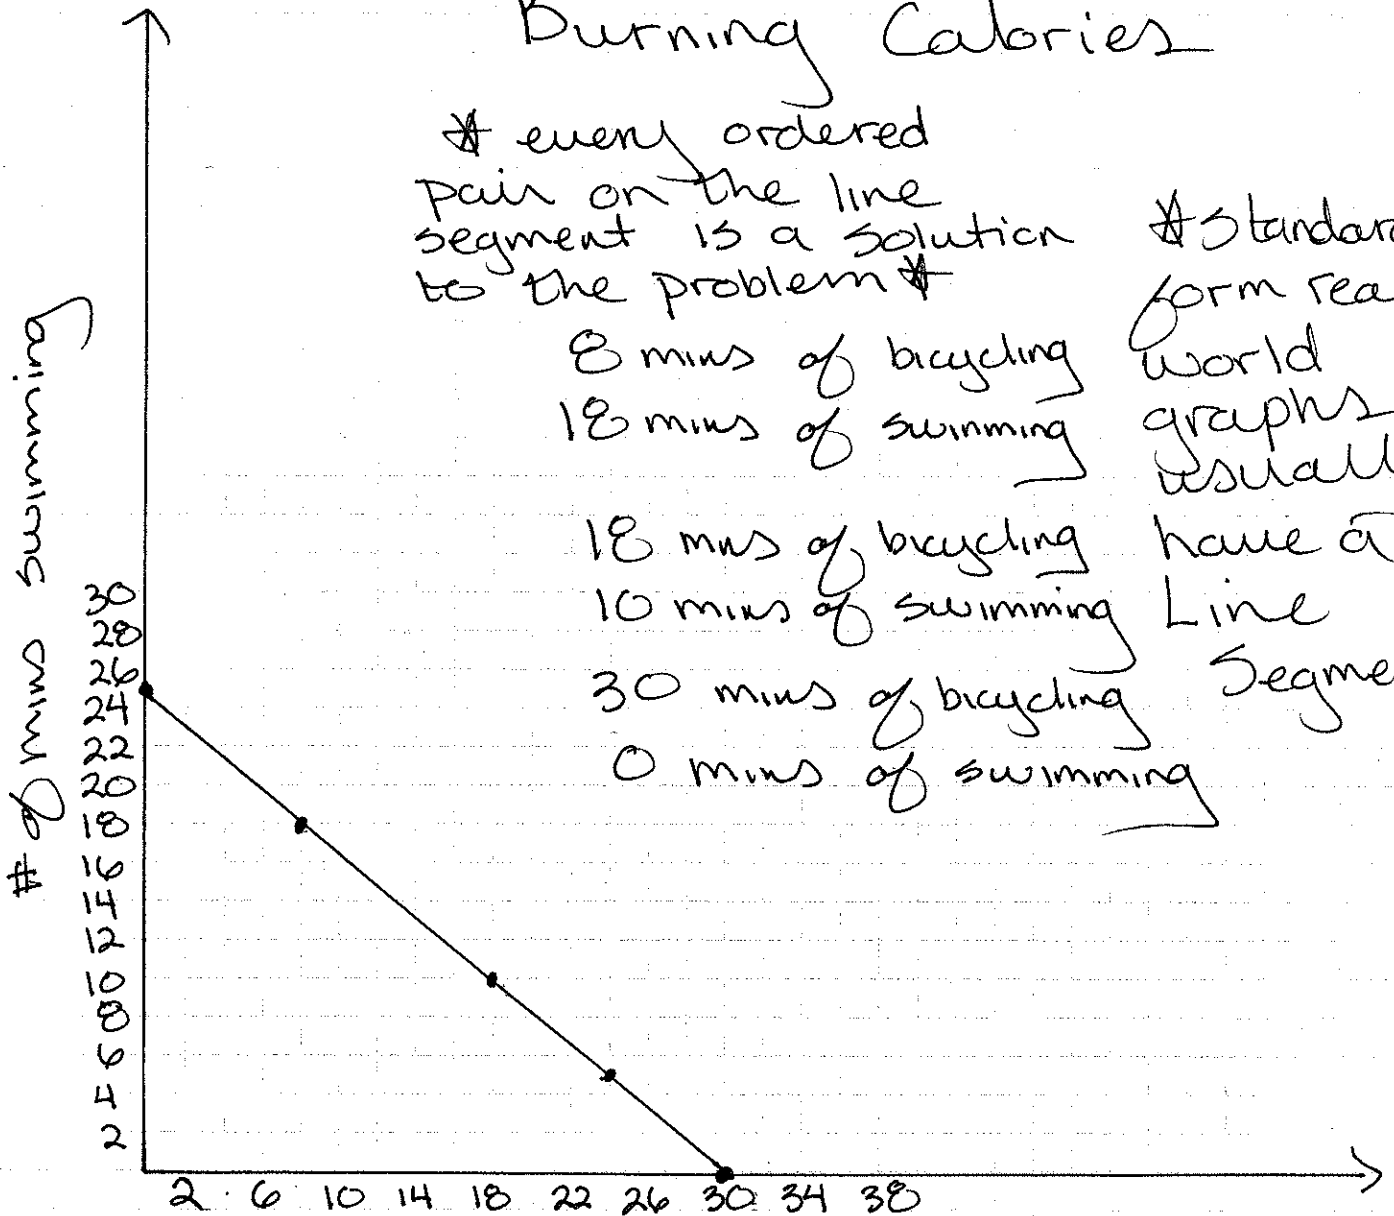 Burning Calories
* every ordered
pair on the line
segment is a solution
to the problem *
8 mins of bicycling
18 mins of swimming
18 mins of bicycling
10 mins of swimming
30 mins of bicycling
0 mins of swimming
* Standar
form rea
world
graphs
usuall
have a
Line
Segme
# of mins swimming
30
28
26
24
22
20
18
16
14
12
10
8
6
4
2
2 6 10 14 18 22 26 30 34 38